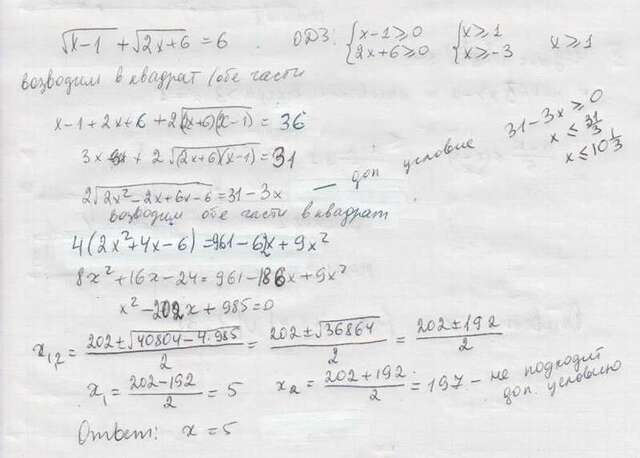 √x-1 + √2x+6 = 6 ОДЗ: {x-1≥0 2x+6≥0 {x≥1 x≥-3 x≥1
возводим в квадрат обе части
x-1+2x+6+2√(2x+6)(x-1) = 36
3x + 2√(2x+6)(x-1) = 31
2√2x²-2x+6x-6 = 31-3x — доп условие 31-3x≥0
x ≤ 31/3
x ≤ 10 1/3
возводим обе части в квадрат
4(2x²+4x-6) = 961-62x+9x²
8x²+16x-24 = 961-186x+9x²
x²-202x+985=0
x1,2 = 202±√40804-4·985 / 2 = 202±√36864 / 2 = 202±192 / 2
x1 = 202-192 / 2 = 5 x2 = 202+192 / 2 = 197 - не подходит доп. условию
Ответ: x = 5